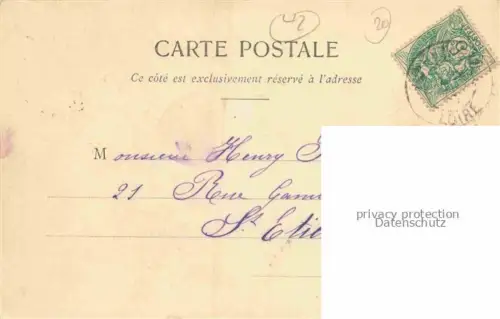 42
20
CARTE POSTALE
Ce côté est exclusivement réservé à l'adresse
LOIRE
Monsieur Henry
21 Rue
St Etie
privacy protection
Datenschutz